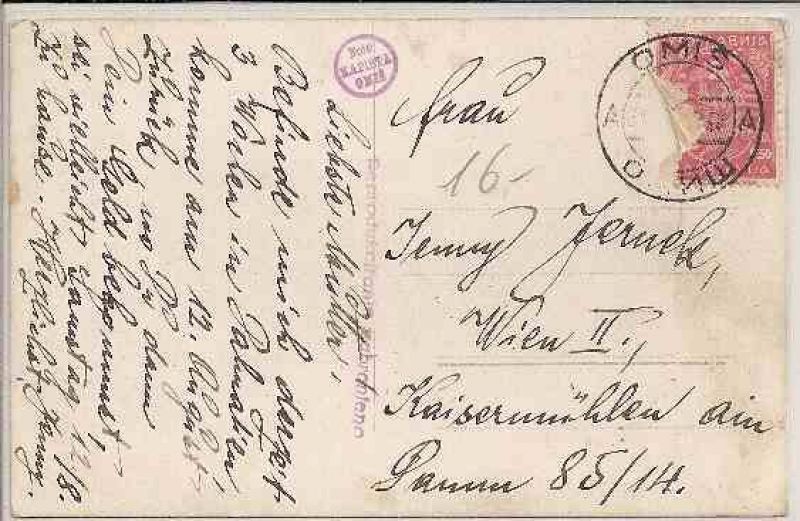 Liebste Mutter!
Befinde mich derzeit
3 Wochen in Dalmatien
komme am 12. August
Zurück, wo Du dann
Dein Geld bekommst,
sei vielleicht Samstag 12/8.
zu hause. Herzlichst Jenny.
Foto
KAPISTA
OMIŠ
Reproduciranje zabranjeno
OMIŠ
ОМИШ
A A
50
Frau
16.-
Jenny
Wien II.,
Kaisermühlen am
Damm 85/14.